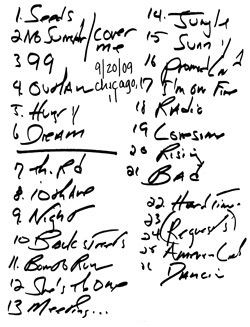 1. Seeds
2. No Surrend/cover me
3. 99
4. Outlaw
5. Hungry
6. Dream
7. Th. Rd
8. 10th Ave
9. Night
10 Backstreets
11. Born to Run
12 She's th One
13 Meeting...
9/20/09
chicago, il
14. Jungle
15 Sunny
16 Promised
17 I'm on Fire
18 Radio
19 Lonesome
20 Rising
21 Bad
22. Hard Times
23
24 (Request)
25 American Land
26 Dancin